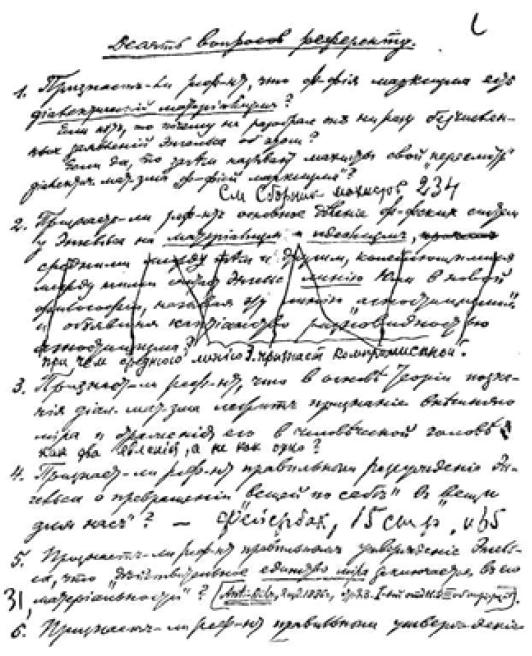 Десять вопросов референту.
1. Признает-ли реф-нт, что ф-фия марксизма есть
діалектическій матеріализмъ?
Если нет, то почему не разобрал он ни разу безчислен-
ных заявлений Энгельса об этом?
Если да, то зачем называют махисты свой „пересмотр"
діалект. мат-зма „ф-фіей марксизма"?
См Сборник махистов 234
2. Признает-ли реф-нт основное деление ф-фских систем
у Энгельса на матеріализм и идеализм, причем
средними между тем и другим, колеблющимися
между ними считает Энгельс линию Юма в новой
философии, называя эту линию „агностицизмом"
и объявляя кантіанство разновидностью
агностицизма?
3. Признает-ли реф-нт, что в основе теоріи позна-
нія діал. мат-зма лежит признаніе внешняго
міра и отраженія его в человеческой голове?
4. Признает-ли реф-нт правильным разсужденіе Эн-
гельса о превращеніи „вещей по себѣ" в „вещи
для нас"? — Фейербах, 15 стр.
5. Признает-ли реф-нт правильным утвержденіе Энгель-
са, что „действительное единство міра заключается в его
31, матеріальности"? (Anti-Dühr, 2 изд. 1886,
6. Признает-ли реф-нт правильным утвержденіе